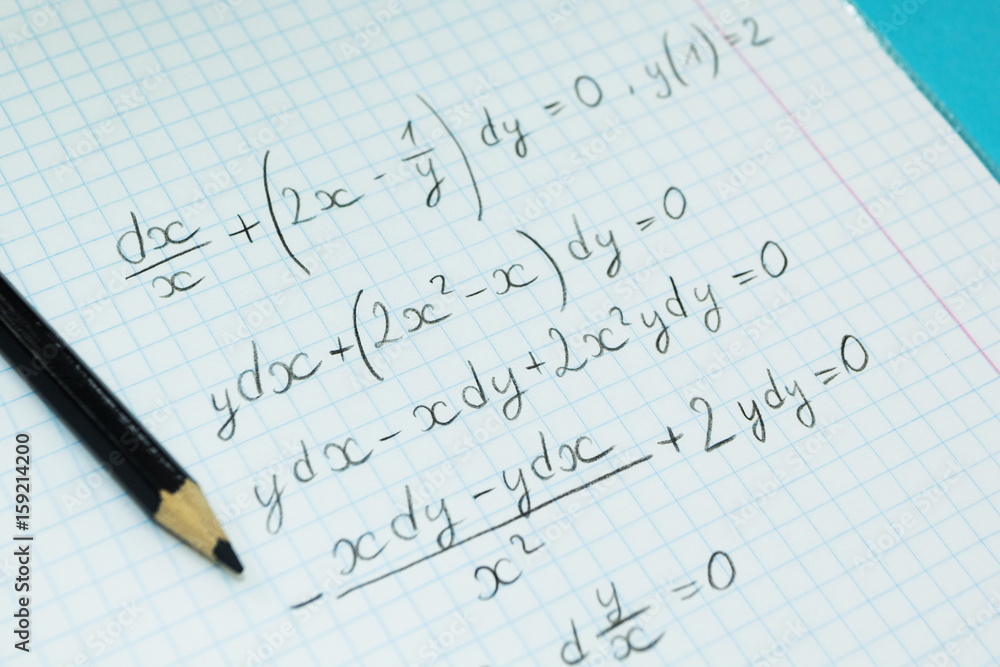 dx/x + (2x - 1/y) dy = 0, y(1) = 2
ydx + (2x² - x) dy = 0
ydx - xdy + 2x²ydy = 0
- (xdy - ydx)/x² + 2ydy = 0
d y/x = 0
Adobe Stock | #159214200